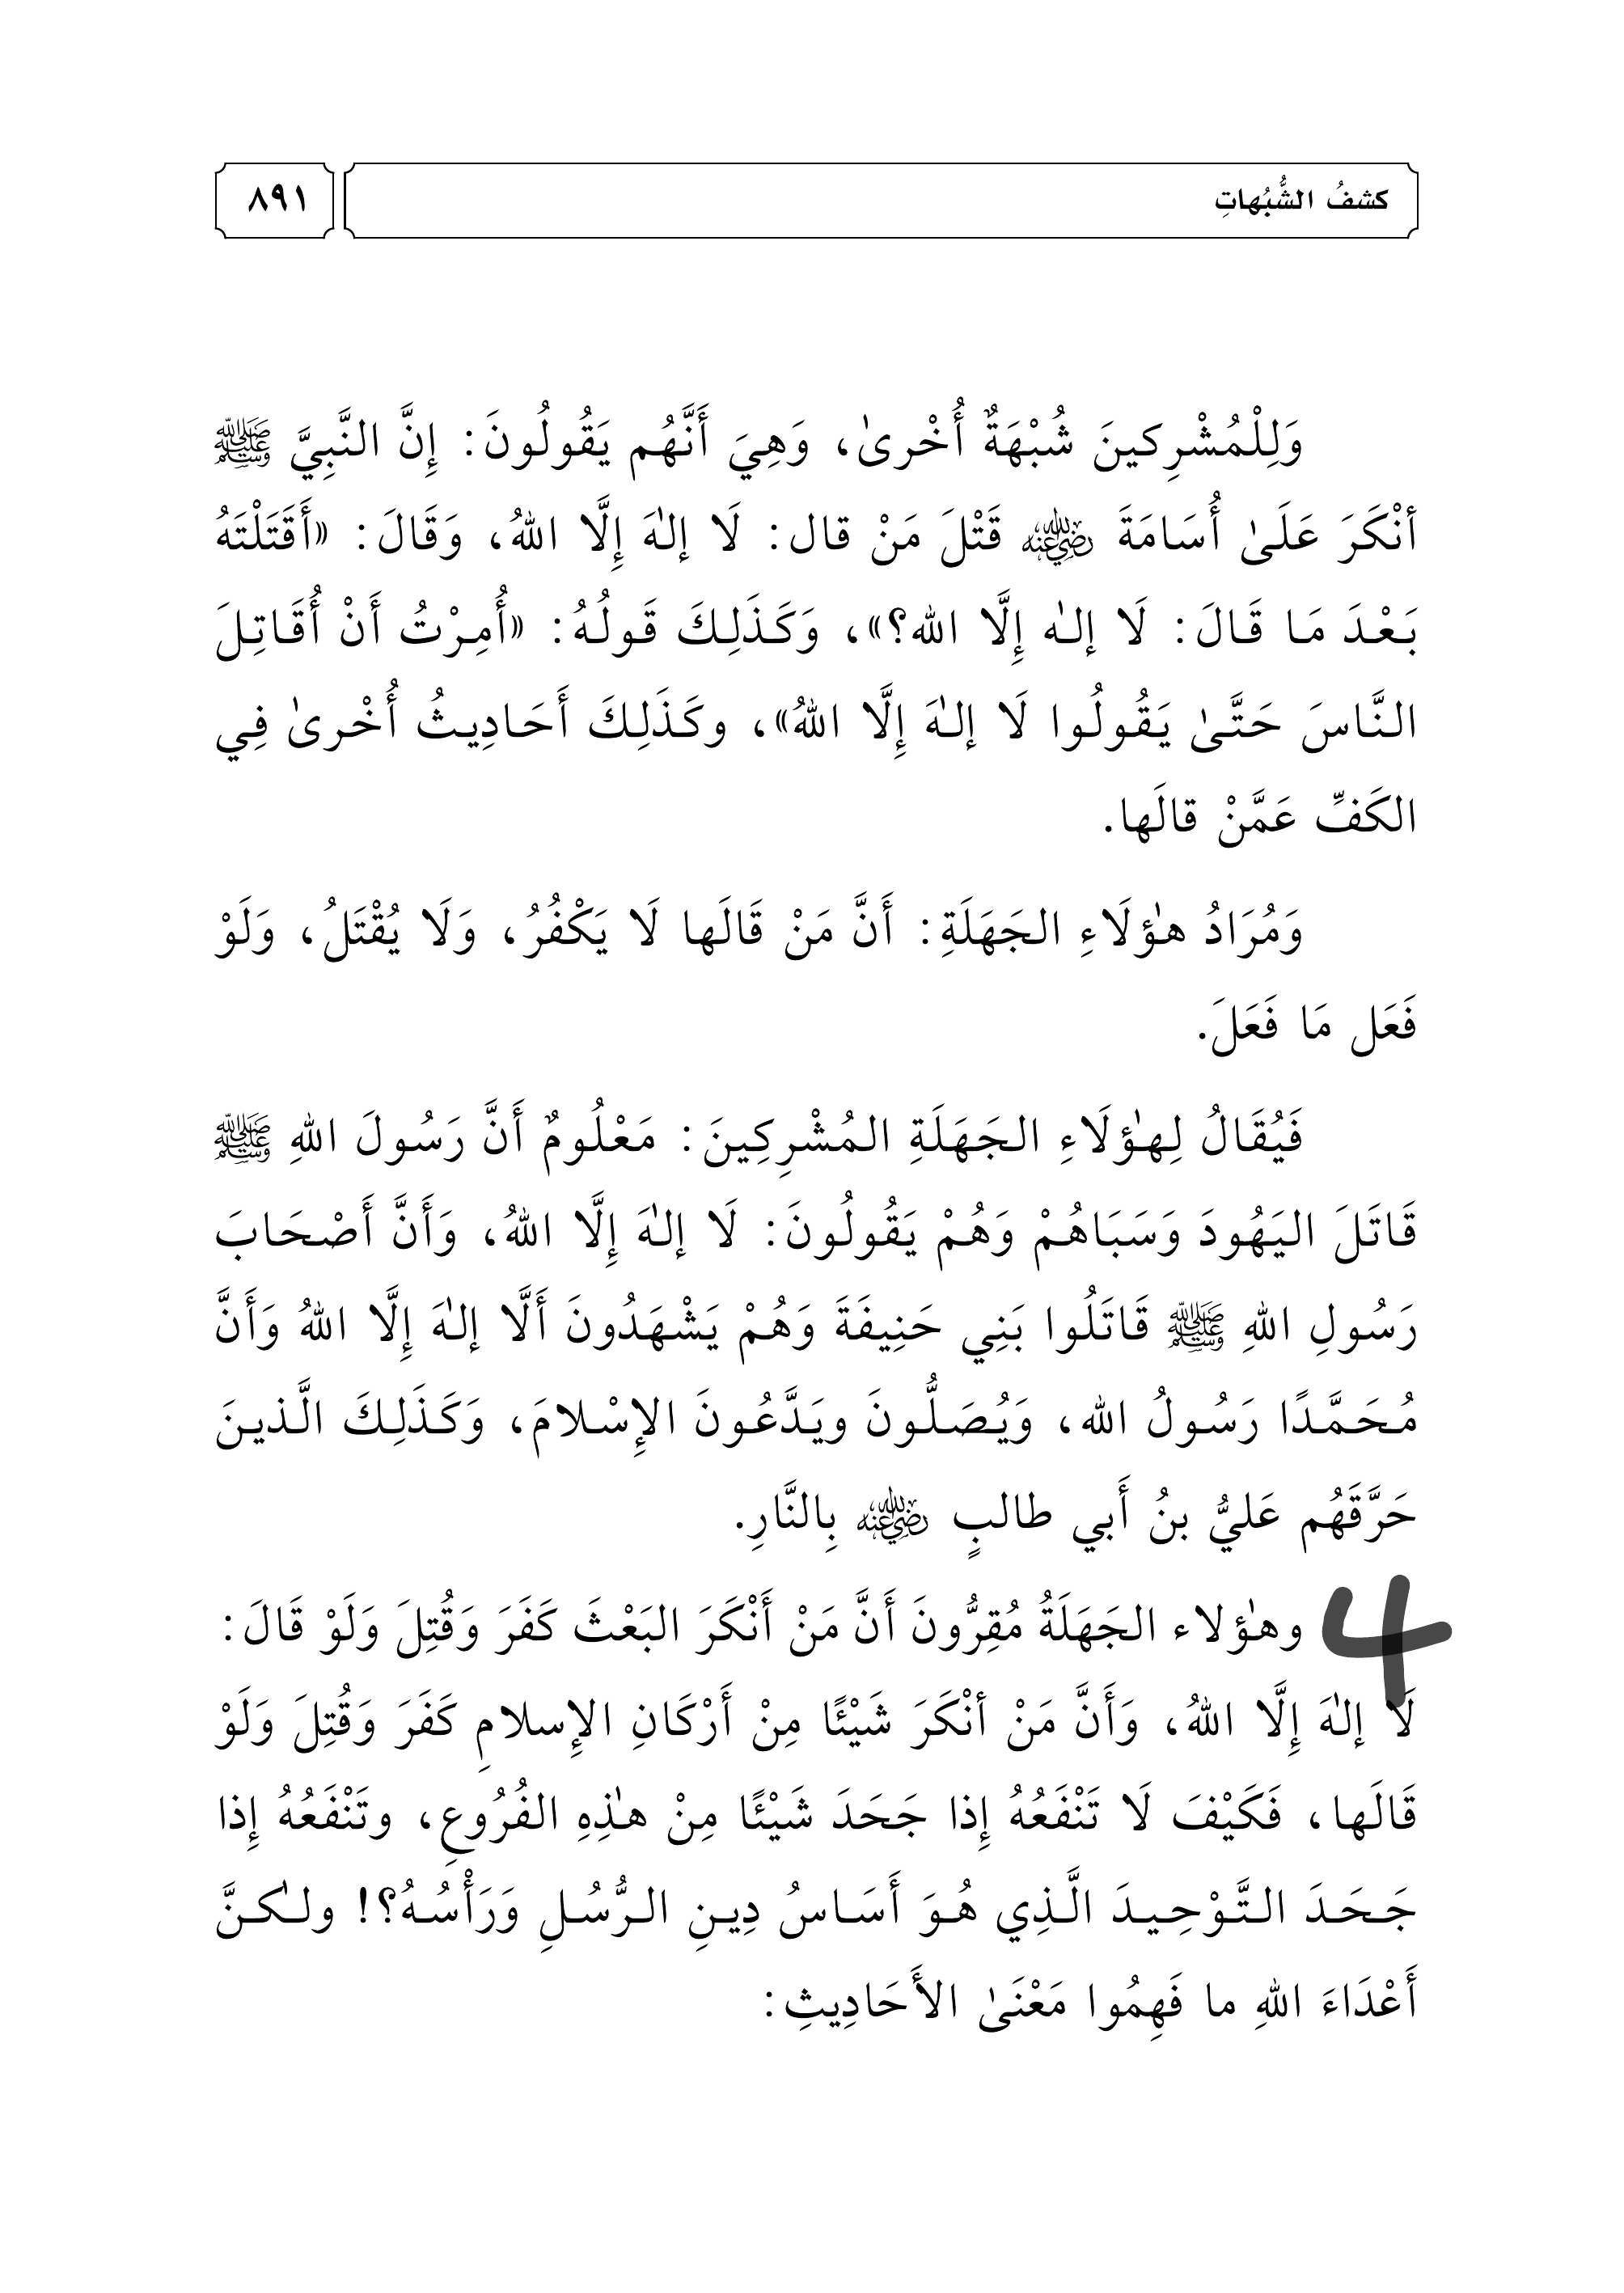 كشفُ الشُّبُهاتِ
٨٩١
وَلِلْمُشْرِكينَ شُبْهَةٌ أُخْرىٰ، وَهِيَ أَنَّهُم يَقُولُونَ: إِنَّ النَّبِيَّ ﷺ
أنْكَرَ عَلَىٰ أُسَامَةَ رضي الله عنه قَتْلَ مَنْ قال: لَا إلٰهَ إِلَّا اللهُ، وَقَالَ: «أَقَتَلْتَهُ
بَعْدَ مَا قَالَ: لَا إلٰه إِلَّا الله؟»، وَكَذَلِكَ قَولُهُ: «أُمِرْتُ أَنْ أُقَاتِلَ
النَّاسَ حَتَّىٰ يَقُولُوا لَا إلٰهَ إِلَّا اللهُ»، وكَذَلِكَ أَحَادِيثُ أُخْرىٰ فِي
الكَفِّ عَمَّنْ قالَها.
وَمُرَادُ هٰؤلَاءِ الجَهَلَةِ: أَنَّ مَنْ قَالَها لَا يَكْفُرُ، وَلَا يُقْتَلُ، وَلَوْ
فَعَل مَا فَعَلَ.
فَيُقَالُ لِهٰؤلَاءِ الجَهَلَةِ المُشْرِكِينَ: مَعْلُومٌ أَنَّ رَسُولَ اللهِ ﷺ
قَاتَلَ اليَهُودَ وَسَبَاهُمْ وَهُمْ يَقُولُونَ: لَا إلٰهَ إِلَّا اللهُ، وَأَنَّ أَصْحَابَ
رَسُولِ اللهِ ﷺ قَاتَلُوا بَنِي حَنِيفَةَ وَهُمْ يَشْهَدُونَ أَلَّا إلٰهَ إِلَّا اللهُ وَأَنَّ
مُحَمَّدًا رَسُولُ الله، وَيُصَلُّونَ ويَدَّعُونَ الإِسْلامَ، وَكَذَلِكَ الَّذينَ
حَرَّقَهُم عَليُّ بنُ أَبي طالبٍ رضي الله عنه بِالنَّارِ.
4 وهٰؤلاء الجَهَلَةُ مُقِرُّونَ أَنَّ مَنْ أَنْكَرَ البَعْثَ كَفَرَ وَقُتِلَ وَلَوْ قَالَ:
لَا إلٰهَ إِلَّا اللهُ، وَأَنَّ مَنْ أنْكَرَ شَيْئًا مِنْ أَرْكَانِ الإِسلامِ كَفَرَ وَقُتِلَ وَلَوْ
قَالَها، فَكَيْفَ لَا تَنْفَعُهُ إِذا جَحَدَ شَيْئًا مِنْ هٰذِهِ الفُرُوعِ، وتَنْفَعُهُ إِذا
جَحَدَ التَّوْحِيدَ الَّذِي هُوَ أَسَاسُ دِينِ الرُّسُلِ وَرَأْسُهُ؟! ولٰكنَّ
أَعْدَاءَ اللهِ ما فَهِمُوا مَعْنَىٰ الأَحَادِيثِ: